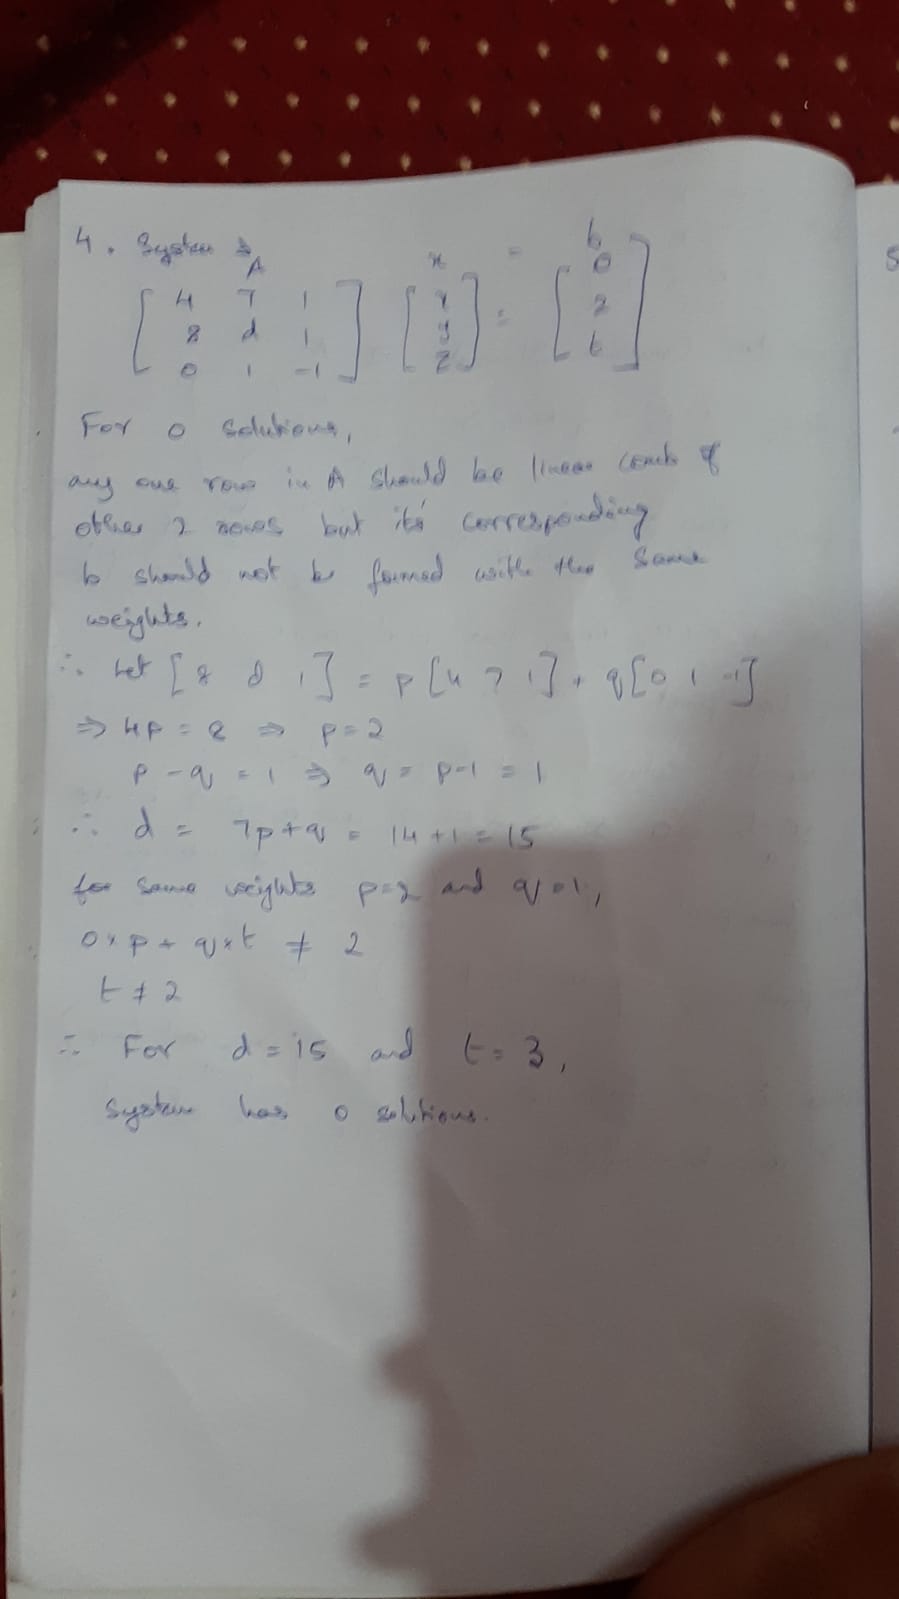 4. System :
A x = b
[ 4 7 1 ] [ x ] = [ 0 ]
[ 8 d 1 ] [ y ] [ 2 ]
[ 0 1 -1 ] [ z ] [ t ]
For 0 solutions,
any one row in A should be linear comb of
other 2 rows but its corresponding
b should not be formed with the same
weights.
∴ Let [8 d 1] = p[4 7 1] + q[0 1 -1]
⇒ 4p = 8 ⇒ p = 2
p - q = 1 ⇒ q = p-1 = 1
∴ d = 7p+q = 14+1 = 15
for same weights p=2 and q=1,
0×p + q×t ≠ 2
t ≠ 2
∴ For d = 15 and t = 3,
System has 0 solutions.